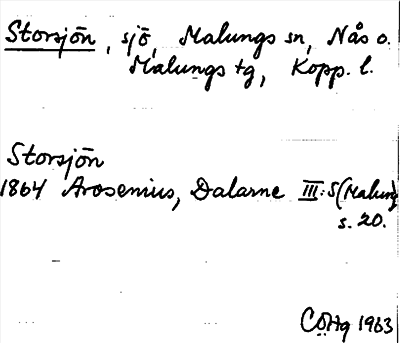 Storsjön, sjö, Malungs sn, Nås o.
Malungs tg, Kopp. l.
Storsjön
1864 Arosenius, Dalarne III:5 (Malung)
s. 20.
CÖHg 1963